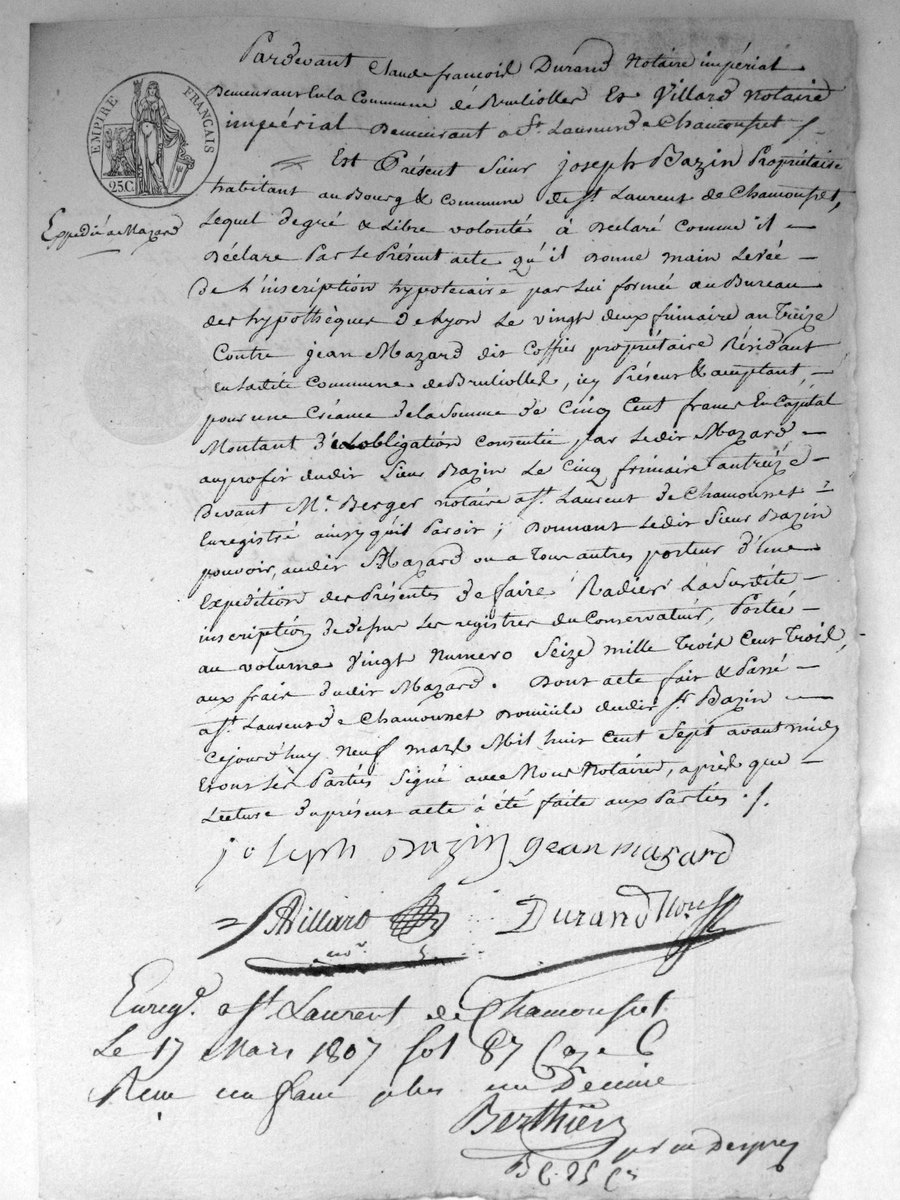 EMPIRE FRANÇAIS
25C.
Expedié a Mazard
Pardevant Claude françois Durand Notaire impérial
Demeurant En la Commune de Brulliolles Et Villard Notaire
impérial Demeurant a St. Laurent de Chamousset
Est Présent Sieur joseph Bazin Propriétaire
habitant au Bourg & Commune de St Laurent de Chamousset,
Lequel de gré & Libre volonté à Déclaré comme il
Déclare Par Le Présent acte qu'il Donne main Levée
De L'inscription hypotecaire par Lui formée au Bureau
des hypothèques De Lyon Le vingt deux frimaire an Treize
Contre jean Mazard dit Coffier propriétaire Résidant
En Ladite Commune de Brulliolles, icy Présent & acceptant,
pour une Créance de la Somme De Cinq Cent francs En Capital
Montant De Lobligation consentie par Ledit Mazard
au profit dudit Sieur Bazin Le Cinq frimaire an treize
Devant Me. Berger notaire a St. Laurent De Chamousset
Enregistré ainsy quil Paroit ; Donnant Ledit Sieur Bazin
pouvoir, audit Mazard ou a Tous autres porteur D'une
Expedition des Présentes De faire Radier La Susdite
inscription de dessus Les registres du Conservateur, Portée
au volume Vingt Numero Seize mille Trois Cent Trois,
aux frais dudit Mazard. Dont acte fait & Passé
a St. Laurent de Chamousset Domicile dudit Sr. Bazin
Cejourd'huy Neuf mars Mil huit Cent Sept avant midy
Et ont Les Parties Signé avec Nous Notaires, après que
Lecture Du présent acte à été faite aux Parties ./.
joseph bazin jean mazard
Villard Durand
Enregé. a St. Laurent de Chamousset
Le 17 Mars 1807 fol 87 Case 6
Reçu un franc plus un Decime
Berthier